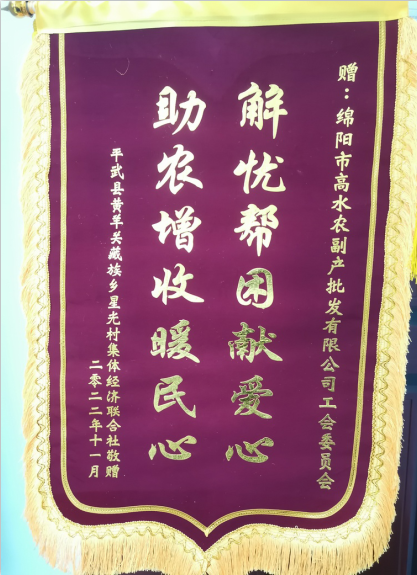 赠：绵阳市高水农副产批发有限公司工会委员会
解忧帮困献爱心
助农增收暖民心
平武县黄羊关藏族乡星光村集体经济联合社敬赠
二零二二年十一月